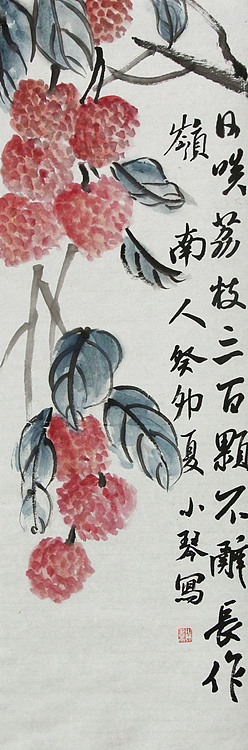 日啖荔枝三百顆不辭長作
嶺南人癸卯夏小琴寫